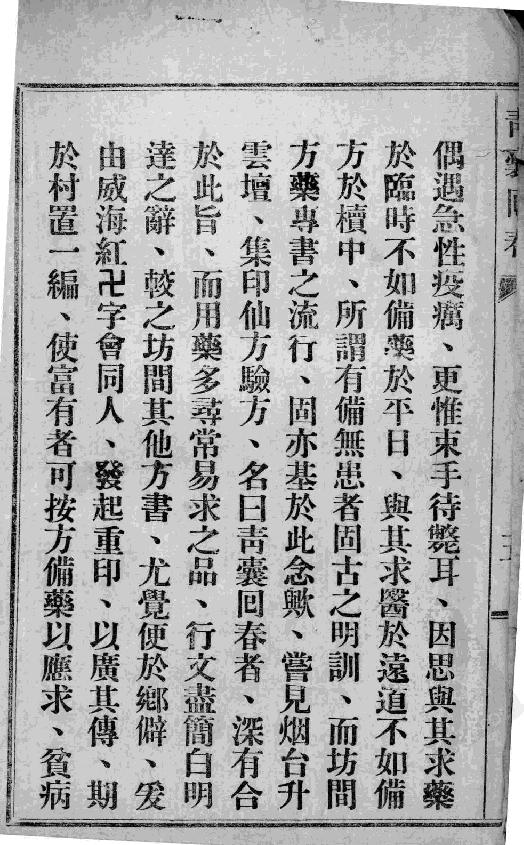 青囊回春
偶遇急性疫癘、更惟束手待斃耳、因思與其求藥
於臨時不如備藥於平日、與其求醫於遠道不如備
方於櫝中、所謂有備無患者固古之明訓、而坊間
方藥專書之流行、固亦基於此念歟、嘗見烟台升
雲壇、集印仙方驗方、名曰靑囊回春者、深有合
於此旨、而用藥多尋常易求之品、行文盡簡白明
達之辭、較之坊間其他方書、尤覺便於鄉僻、爰
由威海紅卍字會同人、發起重印、以廣其傳、期
於村置一編、使富有者可按方備藥以應求、貧病